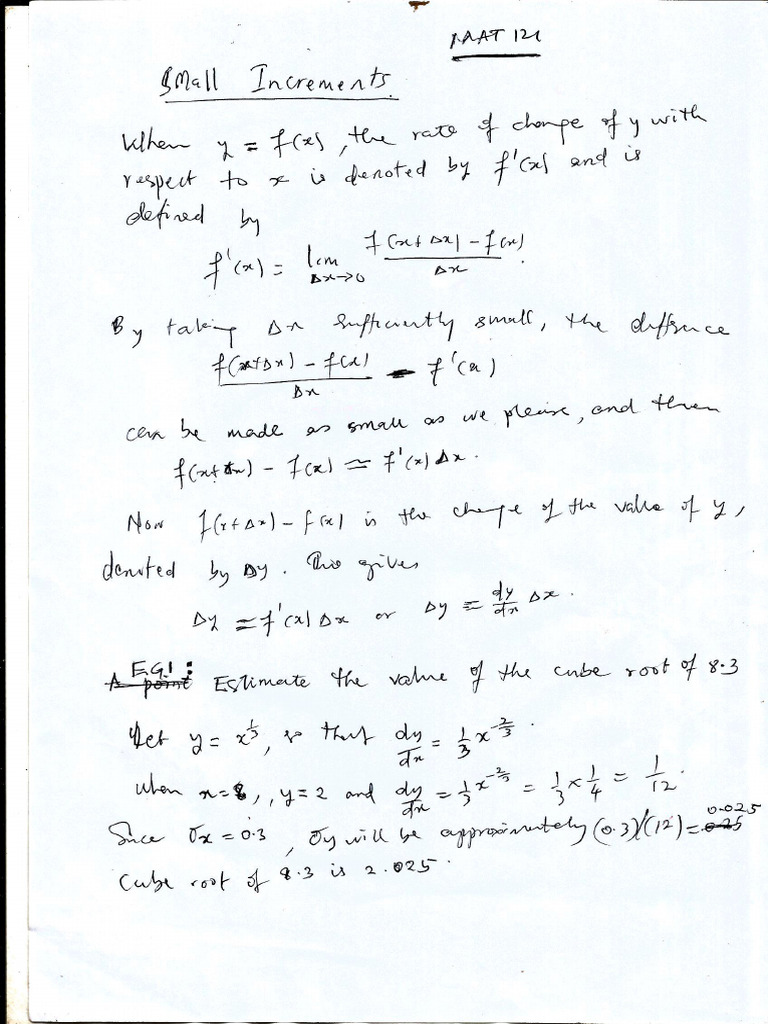 MAT 121
Small Increments.
When y = f(x), the rate of change of y with
respect to x is denoted by f'(x) and is
defined by
f'(x) = lim Δx→0 (f(x+Δx) - f(x))/Δx.
By taking Δx sufficiently small, the difference
(f(x+Δx) - f(x))/Δx - f'(x)
can be made as small as we please, and then
f(x+Δx) - f(x) ≃ f'(x) Δx.
Now f(x+Δx) - f(x) is the change of the value of y,
denoted by Δy. This gives
Δy ≃ f'(x) Δx or Δy ≃ dy/dx Δx.
E.G.1: Estimate the value of the cube root of 8.3
Let y = x^(1/3), so that dy/dx = 1/3 x^(-2/3).
When x=8, y=2 and dy/dx = 1/3 x^(-2/3) = 1/3 × 1/4 = 1/12.
Since σx = 0.3, σy will be approximately (0.3)/(12) = 0.025
Cube root of 8.3 is 2.025.